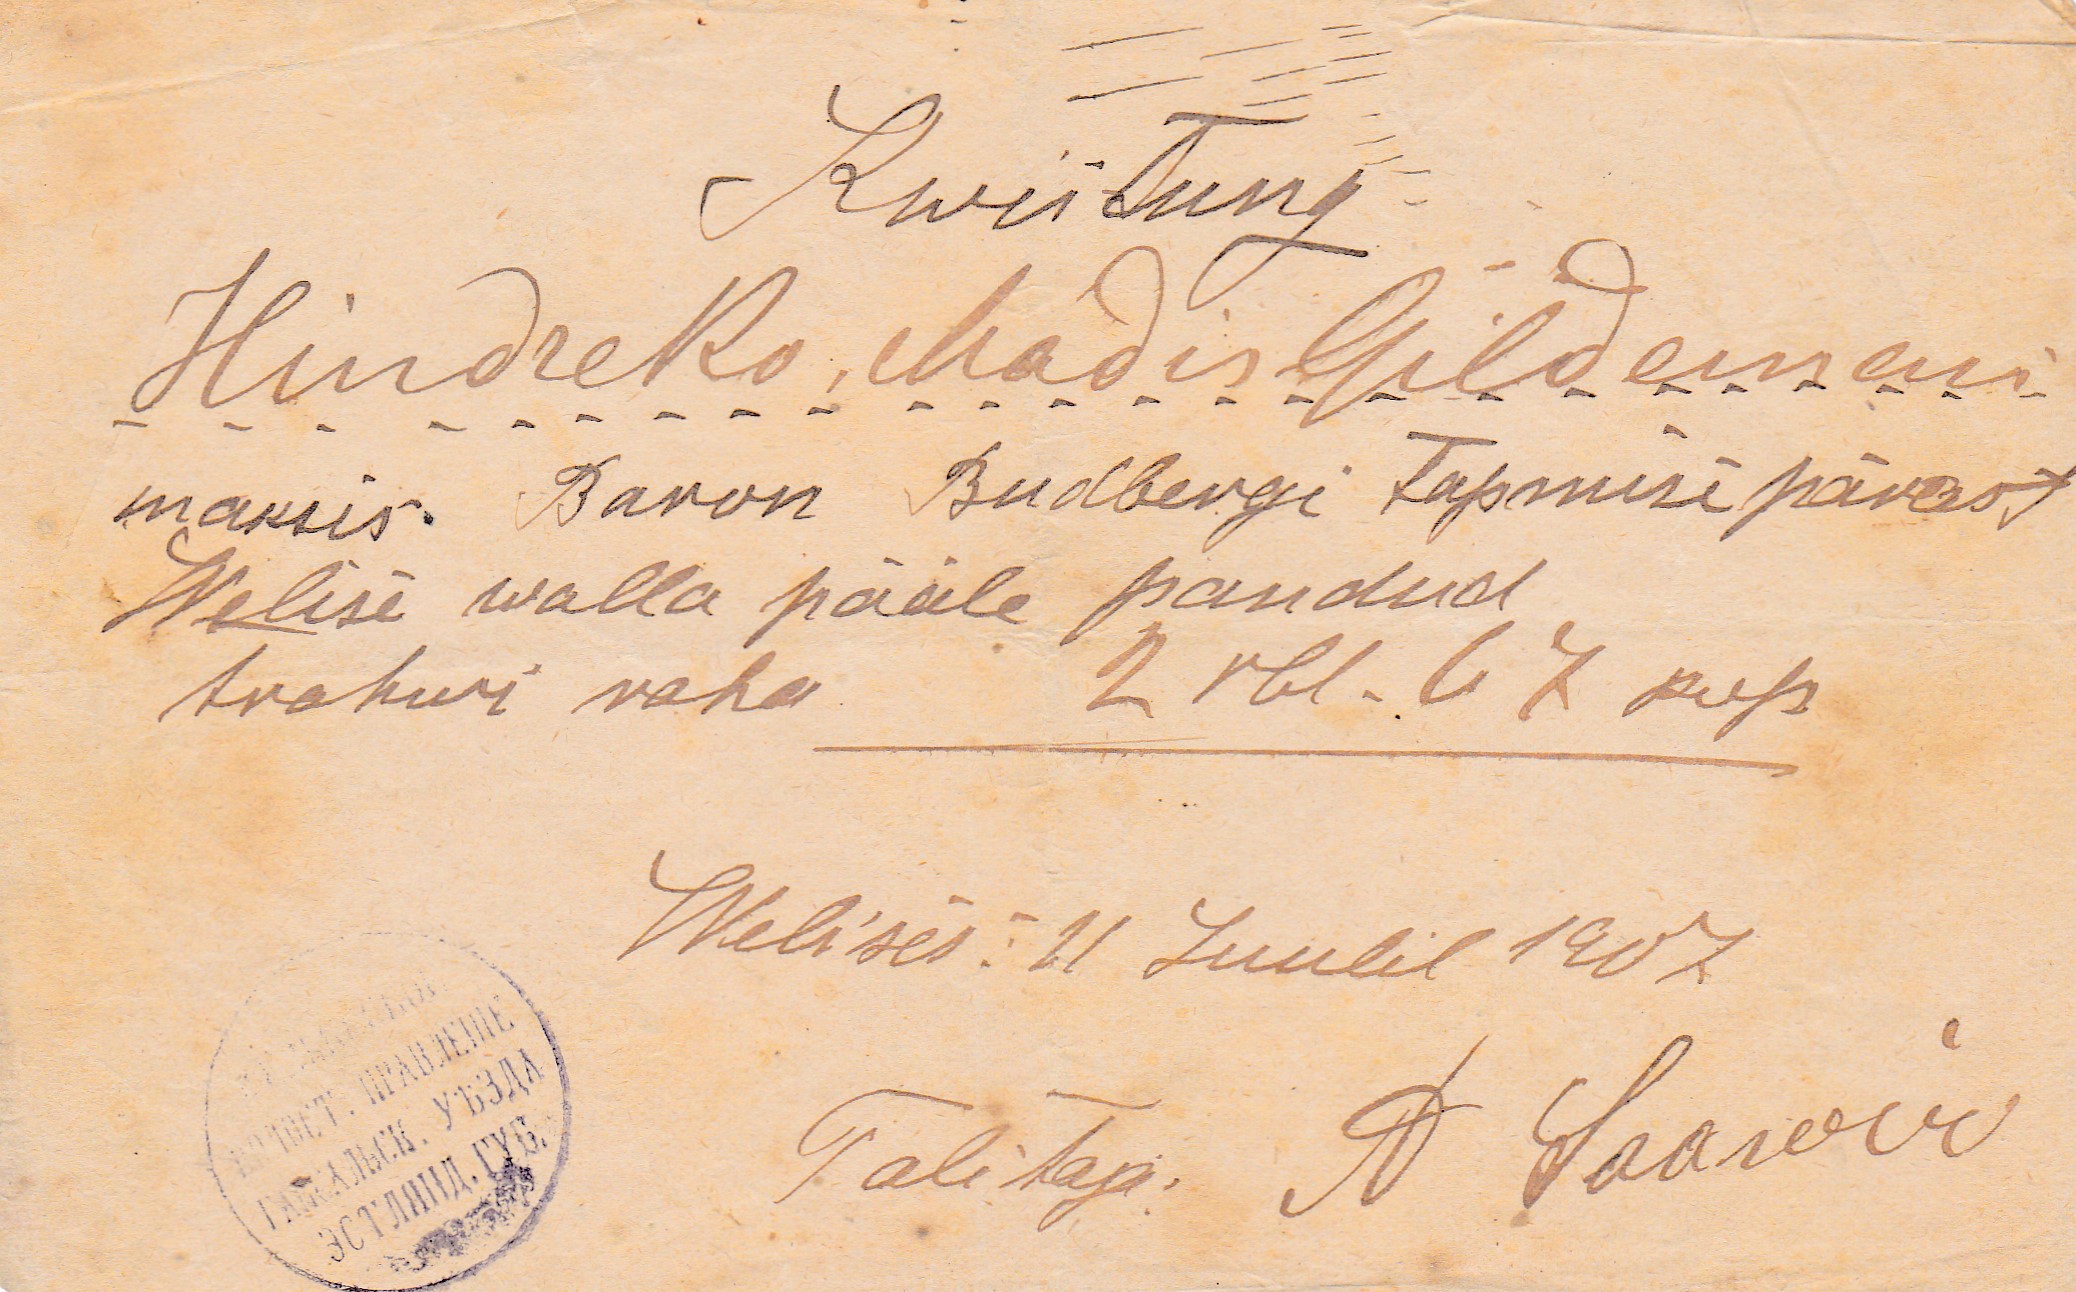 Kwiitung
Hindreko, Madis Gildemani
maksis. Baron Budbergi tapmise pärast
Welise walla pääle pandud
trahwi raha 2 rbl. 67 kop
Welises: 11 Juulil 1907
Talitaja: A Saarwir
ВОЛОСТ. ПРАВЛЕНІЕ
ГАПСАЛЬСК. УѢЗДА
ЭСТЛЯНД. ГУБ.